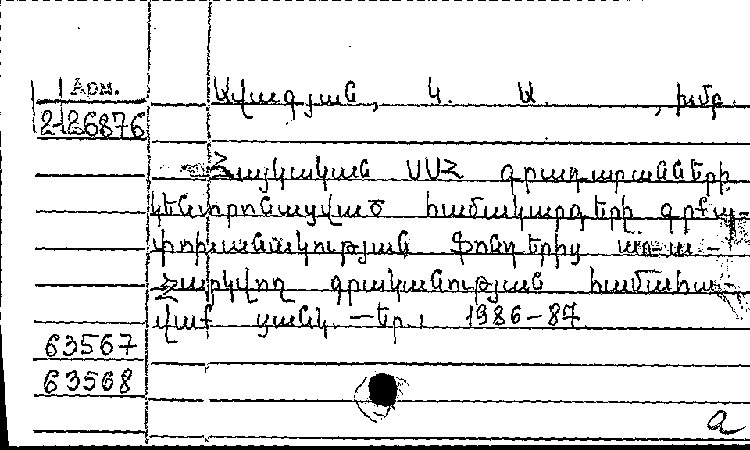 Арм.
Ավագյան, Կ. Ա. , խմբ.
2-126876
Հայկական ՍՍՀ գրադարանների
կենտրոնացված համակարգերի գրքա-
փոխանակության ֆոնդերից առա-
ջարկվող գրականության համահա-
վաք ցանկ. —Եր.: 1986-87
63567
63568
a